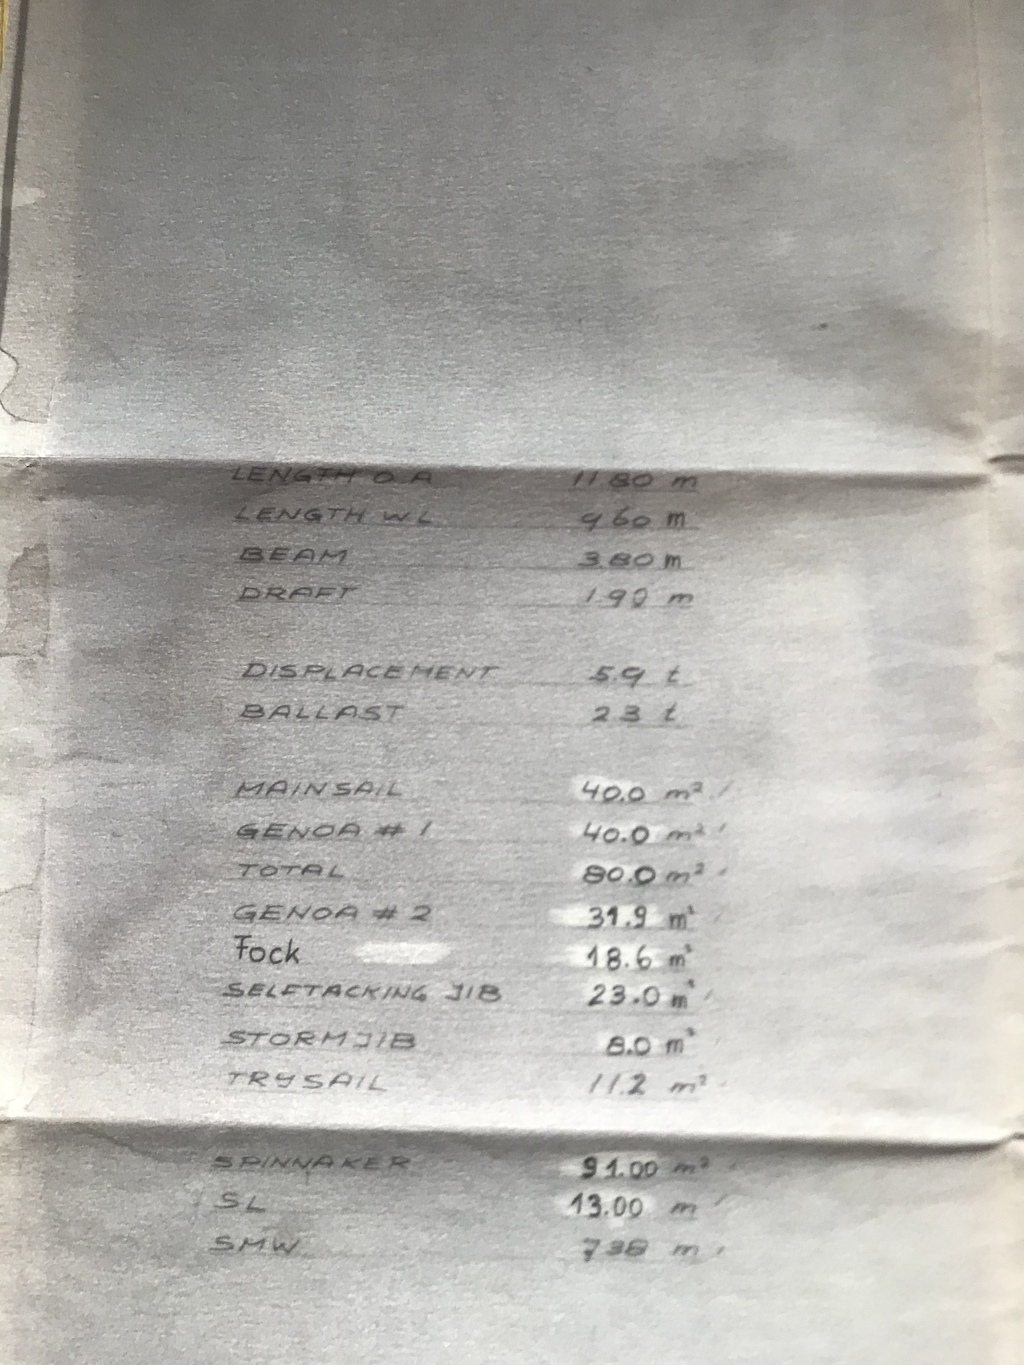 LENGTH O A 11.80 m
LENGTH WL 9.60 m
BEAM 3.80 m
DRAFT 1.90 m
DISPLACEMENT 5.9 t
BALLAST 2.3 t
MAINSAIL 40.0 m²
GENOA # 1 40.0 m²
TOTAL 80.0 m²
GENOA # 2 31.9 m²
Fock 18.6 m²
SELFTACKING JIB 23.0 m²
STORMJIB 8.0 m²
TRYSAIL 11.2 m²
SPINNAKER 91.00 m²
SL 13.00 m
SMW 7.38 m